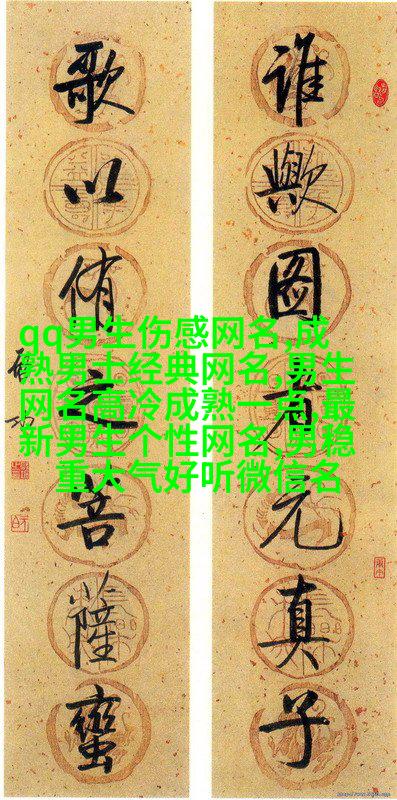 谁歟图者元真子
歌以侑之菩薩蠻
启功
qq男生伤感网名,成
熟男士经典网名,男生
网名高冷成熟一点,最
新男生个性网名,男稳
重大气好听微信名